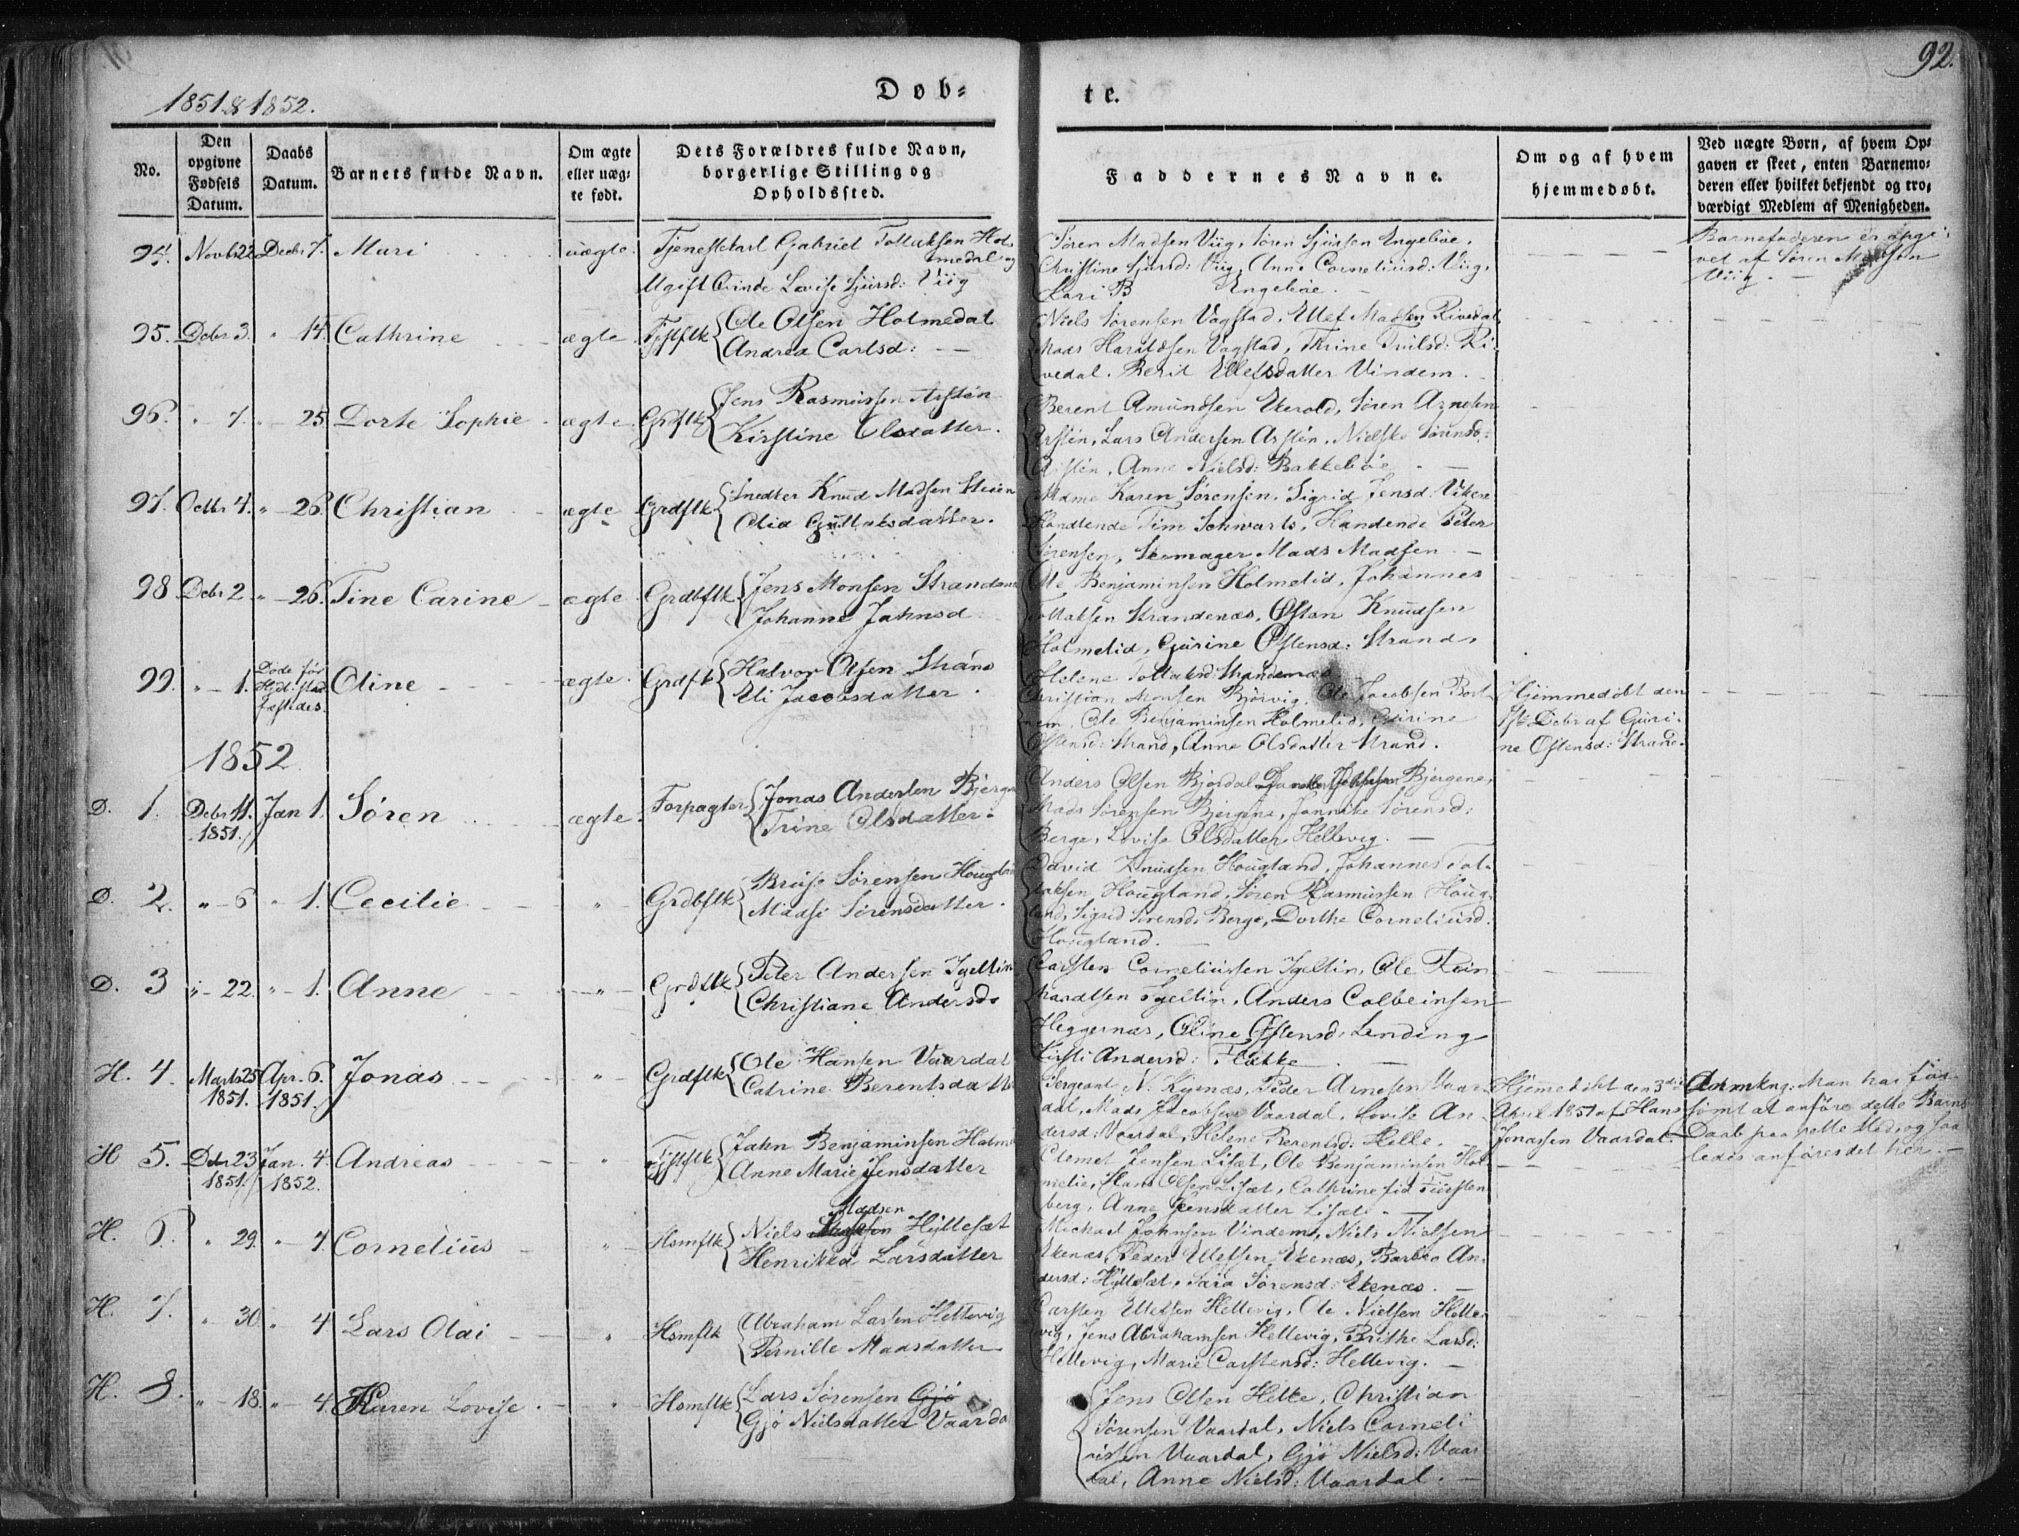 92.
1851 & 1852.
Døb-
te.
No.
Den opgivne Fødsels Datum.
Daabs Datum.
Barnets fulde Navn.
Om ægte eller uægte født.
Dets Forældres fulde Navn, borgerlige Stilling og Opholdssted.
Faddernes Navne.
Om og af hvem hjemmedøbt.
Ved uægte Børn, af hvem Opgaven er skeet, enten Barnemoderen eller hvilket bekjendt og troværdigt Medlem af Menigheden.
94. Novbr 22 Decbr 7. Mari uægte. Tjenestekarl Gabriel Tollaksen Holmedal og
Ugift Qvinde Lovise Sjursd: Viig
Søren Madsen Viig, Søren Sjursen Engebøe,
Christine Sjursd: Viig, Anne Corneliusd: Viig,
Kari B Engebøe.
Barnefaderen er opgi-
vet af Søren Madsen
Viig.
95. Debr 3. " 14. Cathrine ægte Ole Olsen Holmedal
Andrea Carlsd:
Niels Sørensen Vagstad, Ellef Madsen Rivedal
Mads Haraldsen Vagstad, Thrine
vedal. Berit Ellefsdatter Vindem.
96. " 7. " 25 Dorte Sophie ægte Grdflk Jens Rasmussen
Kirstine Olsdatter.
Berent Amundsen Ekerold, Søren Arnesen
Lars Andersen
Anne Nielsd: Bakkebøe
97. Octbr 4. " 26. Christian ægte Grdflk Snedker Knud Madsen Steien
Olia Gullaksdatter.
Mdme Karen Sørensen, Sigrid Jensd: Viken
Handlende Tim Schwarts, Handlende Peter
Sørensen, Skomager Mads Madsen
98 Debr 2 " 26. Tine Carine ægte Grdbflk Jens Monsen
Johanne Jahnsd
Ole Benjaminsen Holmelid, Johannes
Tollaksen Strandenæs, Østen Knudsen
Holmelid, Gurine Østensd: Strand,
Helene Tollaksd: Strandenæs
99. " 1. Døde før Oline ægte. Grdflk Halvor Olsen Strand
Eli Jacobsdatter.
Christian Monsen Bjørvig, Ole Jacobsen
Ole Benjaminsen Holmelid, Gurine
Østensd: Strand, Anne Olsdatter Strand.
Hjemmedøbt den
Debr af Guri-
ne Østensd: Strand.
1852
D. 1. Debr 11. 1851. Jan 1. Søren ægte. Forpagter Jonas Andersen
Trine Olsdatter.
Anders Olsen Bjordal, Bjergene,
Mads Sørensen Bjergene, Jannike Sørensd:
Berge, Lovise Olsdatter Hellevig.
D. 2. " 6 " 1. Cecilie " Grdbflk Sørensen Hougland
Madsi Sørensdatter.
David Knudsen Hougland, Johannes Tol-
laksen Hougland, Søren Rasmussen Houg-
land, Sigrid Sørensd: Berge, Dorthe Corneliusd:
Hougland.
D. 3 " 22. " 1. Anne " Grdflk Peter Andersen
Christiane Andersd:
Carsten Corneliussen Ole
Anders Colbeinsen
Heggernæs, Oline Østensd: Lending
Kirsti Andersd:
H. 4. Marts 25 1851. Apr. 6. 1851. Jonas " Grdflk Ole Hansen Vaardal
Catrine Berentsdatter
Sergeant N. Peder Arnesen Vaar-
dal, Mads Jacobsen Vaardal, Lovise An-
dersd: Vaardal, Helene Berentsd: Helle.
Hjemedøbt den 3die
April 1851 af Hans
Jonassen Vaardal.
Anmkng: Man har for-
sømt at anføre dette Barns
Daab paa rette Sted, og saa-
ledes anføres det her.
H 5. Debr 23 1851. Jan. 4. 1852. Andreas " Jahn Benjaminsen
Anne Marie Jensdatter
Clemet Jensen Lisæt, Ole Benjaminsen Hol-
melid, Hans Olsen Lisæt, Cathrine
berg, Anne Jensdatter Lisæt.
H. 6. " 29. " 4. Cornelius " Hsmflk Niels Madsen Hyllesæt
Henrikka Larsdatter
Michael Johnsen Vindem, Niels Nielsen
Ekenæs, Peder Ellefsen Ekenæs, Barbro An-
dersd: Hyllesæt, Sara Sørensd: Ekenæs.
H. 7. " 30. " 4. Lars Olai " Hsmflk Abraham Larsen Hellevig
Pernille Madsdatter
Carsten Ellefsen Hellevig, Ole Nielsen Helle-
vig, Jens Abrahamsen Hellevig, Brithe Larsd:
Hellevig, Marie Carstensd: Hellevig.
H. 8. " 18. " 4. Karen Lovise. " Hsmflk Lars Sørensen Gjø
Gjø Nielsdatter Vaardal
Jens Olsen Helle, Christian
Sørensen Vaardal, Niels Corneli-
ussen Vaardal, Gjø Nielsd: Vaar-
dal, Anne Nielsd: Vaardal.